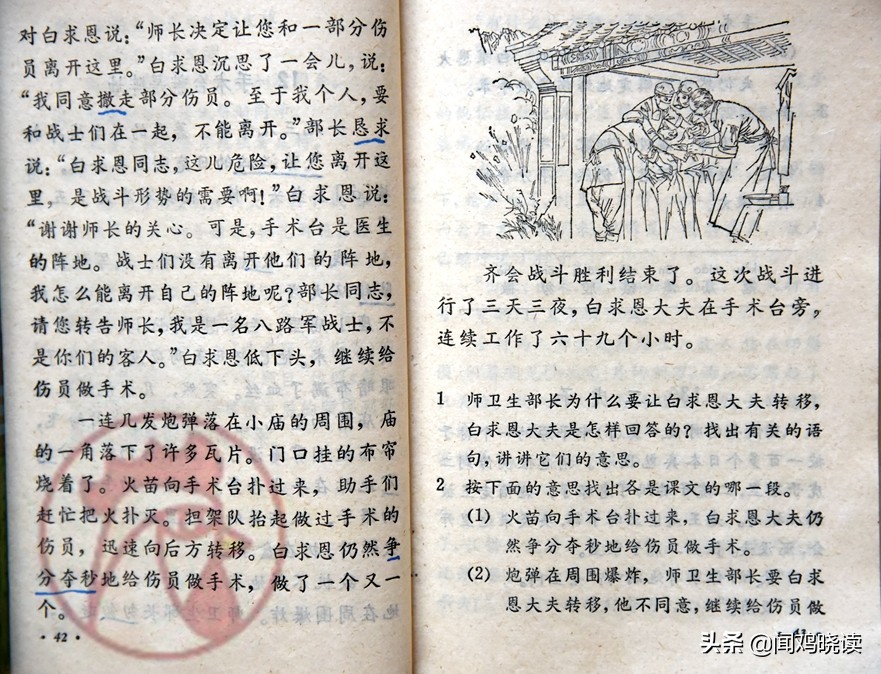 对白求恩说：“师长决定让您和一部分伤
员离开这里。”白求恩沉思了一会儿，说：
“我同意撤走部分伤员。至于我个人，要
和战士们在一起，不能离开。”部长恳求
说：“白求恩同志，这儿危险，让您离开这
里，是战斗形势的需要啊！”白求恩说：
“谢谢师长的关心。可是，手术台是医生
的阵地。战士们没有离开他们的阵地，
我怎么能离开自己的阵地呢？部长同志，
请您转告师长，我是一名八路军战士，不
是你们的客人。”白求恩低下头，继续给
伤员做手术。
一连几发炮弹落在小庙的周围，庙
的一角落下了许多瓦片。门口挂的布帘
烧着了。火苗向手术台扑过来，助手们
赶忙把火扑灭。担架队抬起做过手术的
伤员，迅速向后方转移。白求恩仍然争
分夺秒地给伤员做手术，做了一个又一
个。
·42·
齐会战斗胜利结束了。这次战斗进
行了三天三夜，白求恩大夫在手术台旁，
连续工作了六十九个小时。
1 师卫生部长为什么要让白求恩大夫转移，
白求恩大夫是怎样回答的？找出有关的语
句，讲讲它们的意思。
2 按下面的意思找出各是课文的哪一段。
(1) 火苗向手术台扑过来，白求恩大夫仍
然争分夺秒地给伤员做手术。
(2) 炮弹在周围爆炸，师卫生部长要白求
恩大夫转移，他不同意，继续给伤员做
头条 @闻鸡晓读